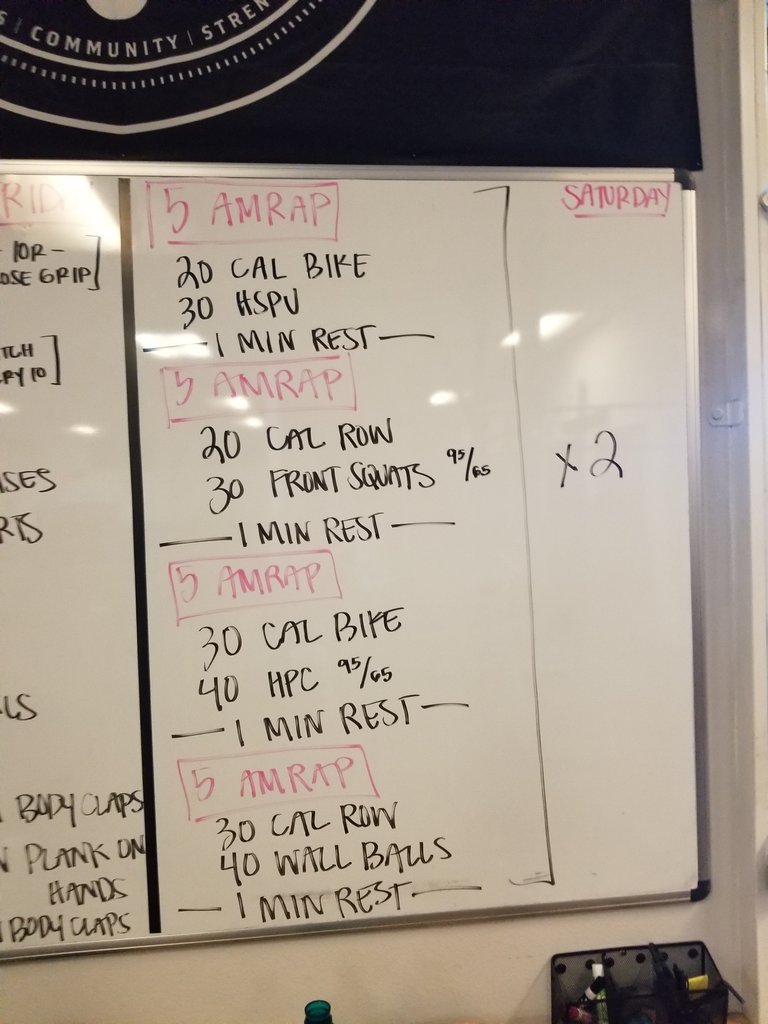 COMMUNITY | STREN
- 10R -
OSE GRIP]
BODY CLAPS
PLANK ON
HANDS
BODY CLAPS
SATURDAY
5 AMRAP
20 CAL BIKE
30 HSPU
— 1 MIN REST —
5 AMRAP
20 CAL ROW
30 FRONT SQUATS 95/65
— 1 MIN REST —
5 AMRAP
30 CAL BIKE
40 HPC 95/65
— 1 MIN REST —
5 AMRAP
30 CAL ROW
40 WALL BALLS
— 1 MIN REST —
x2